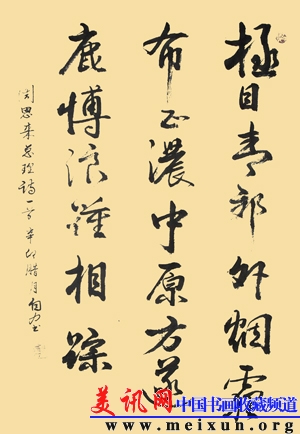 極目青郊外烟霾
布正濃中原方逐
鹿博浪踵相踪
周恩来总理诗一首辛卯腊月
美讯网 中国书画收藏频道
www.meixun.org